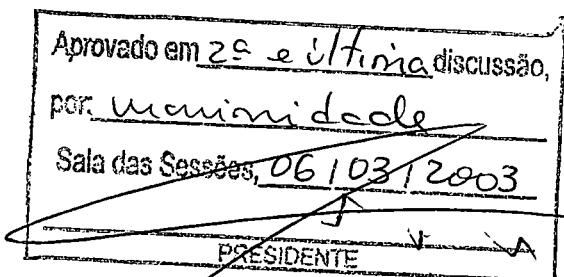 Aprovado em 2ª e última discussão,
por: unanimidade
Sala das Sessões, 06 / 03 / 2003
PRESIDENTE